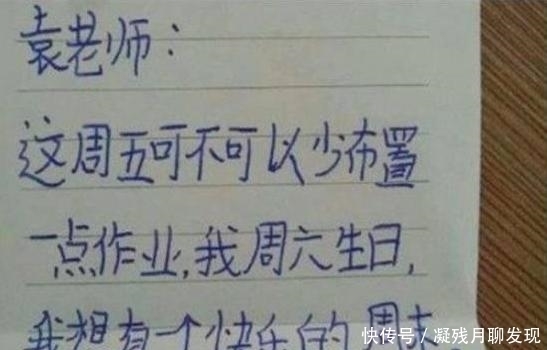 袁老师：
这周五可不可以少布置
一点作业,我周六生日,
我想有一个快乐的周末
快传号／凝残月聊发现